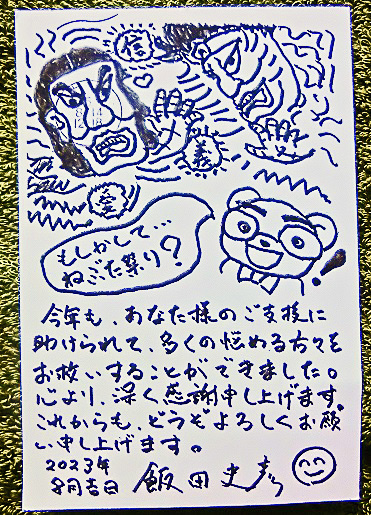 信
義
愛
もしかして…
ねごた祭り?
今年も、あなた様のご支援に
助けられて、多くの悩める方々を
お救いすることができました。
心より、深く感謝申し上げます。
これからも、どうぞよろしくお願
い申し上げます。
2023年
8月吉日
飯田史彦